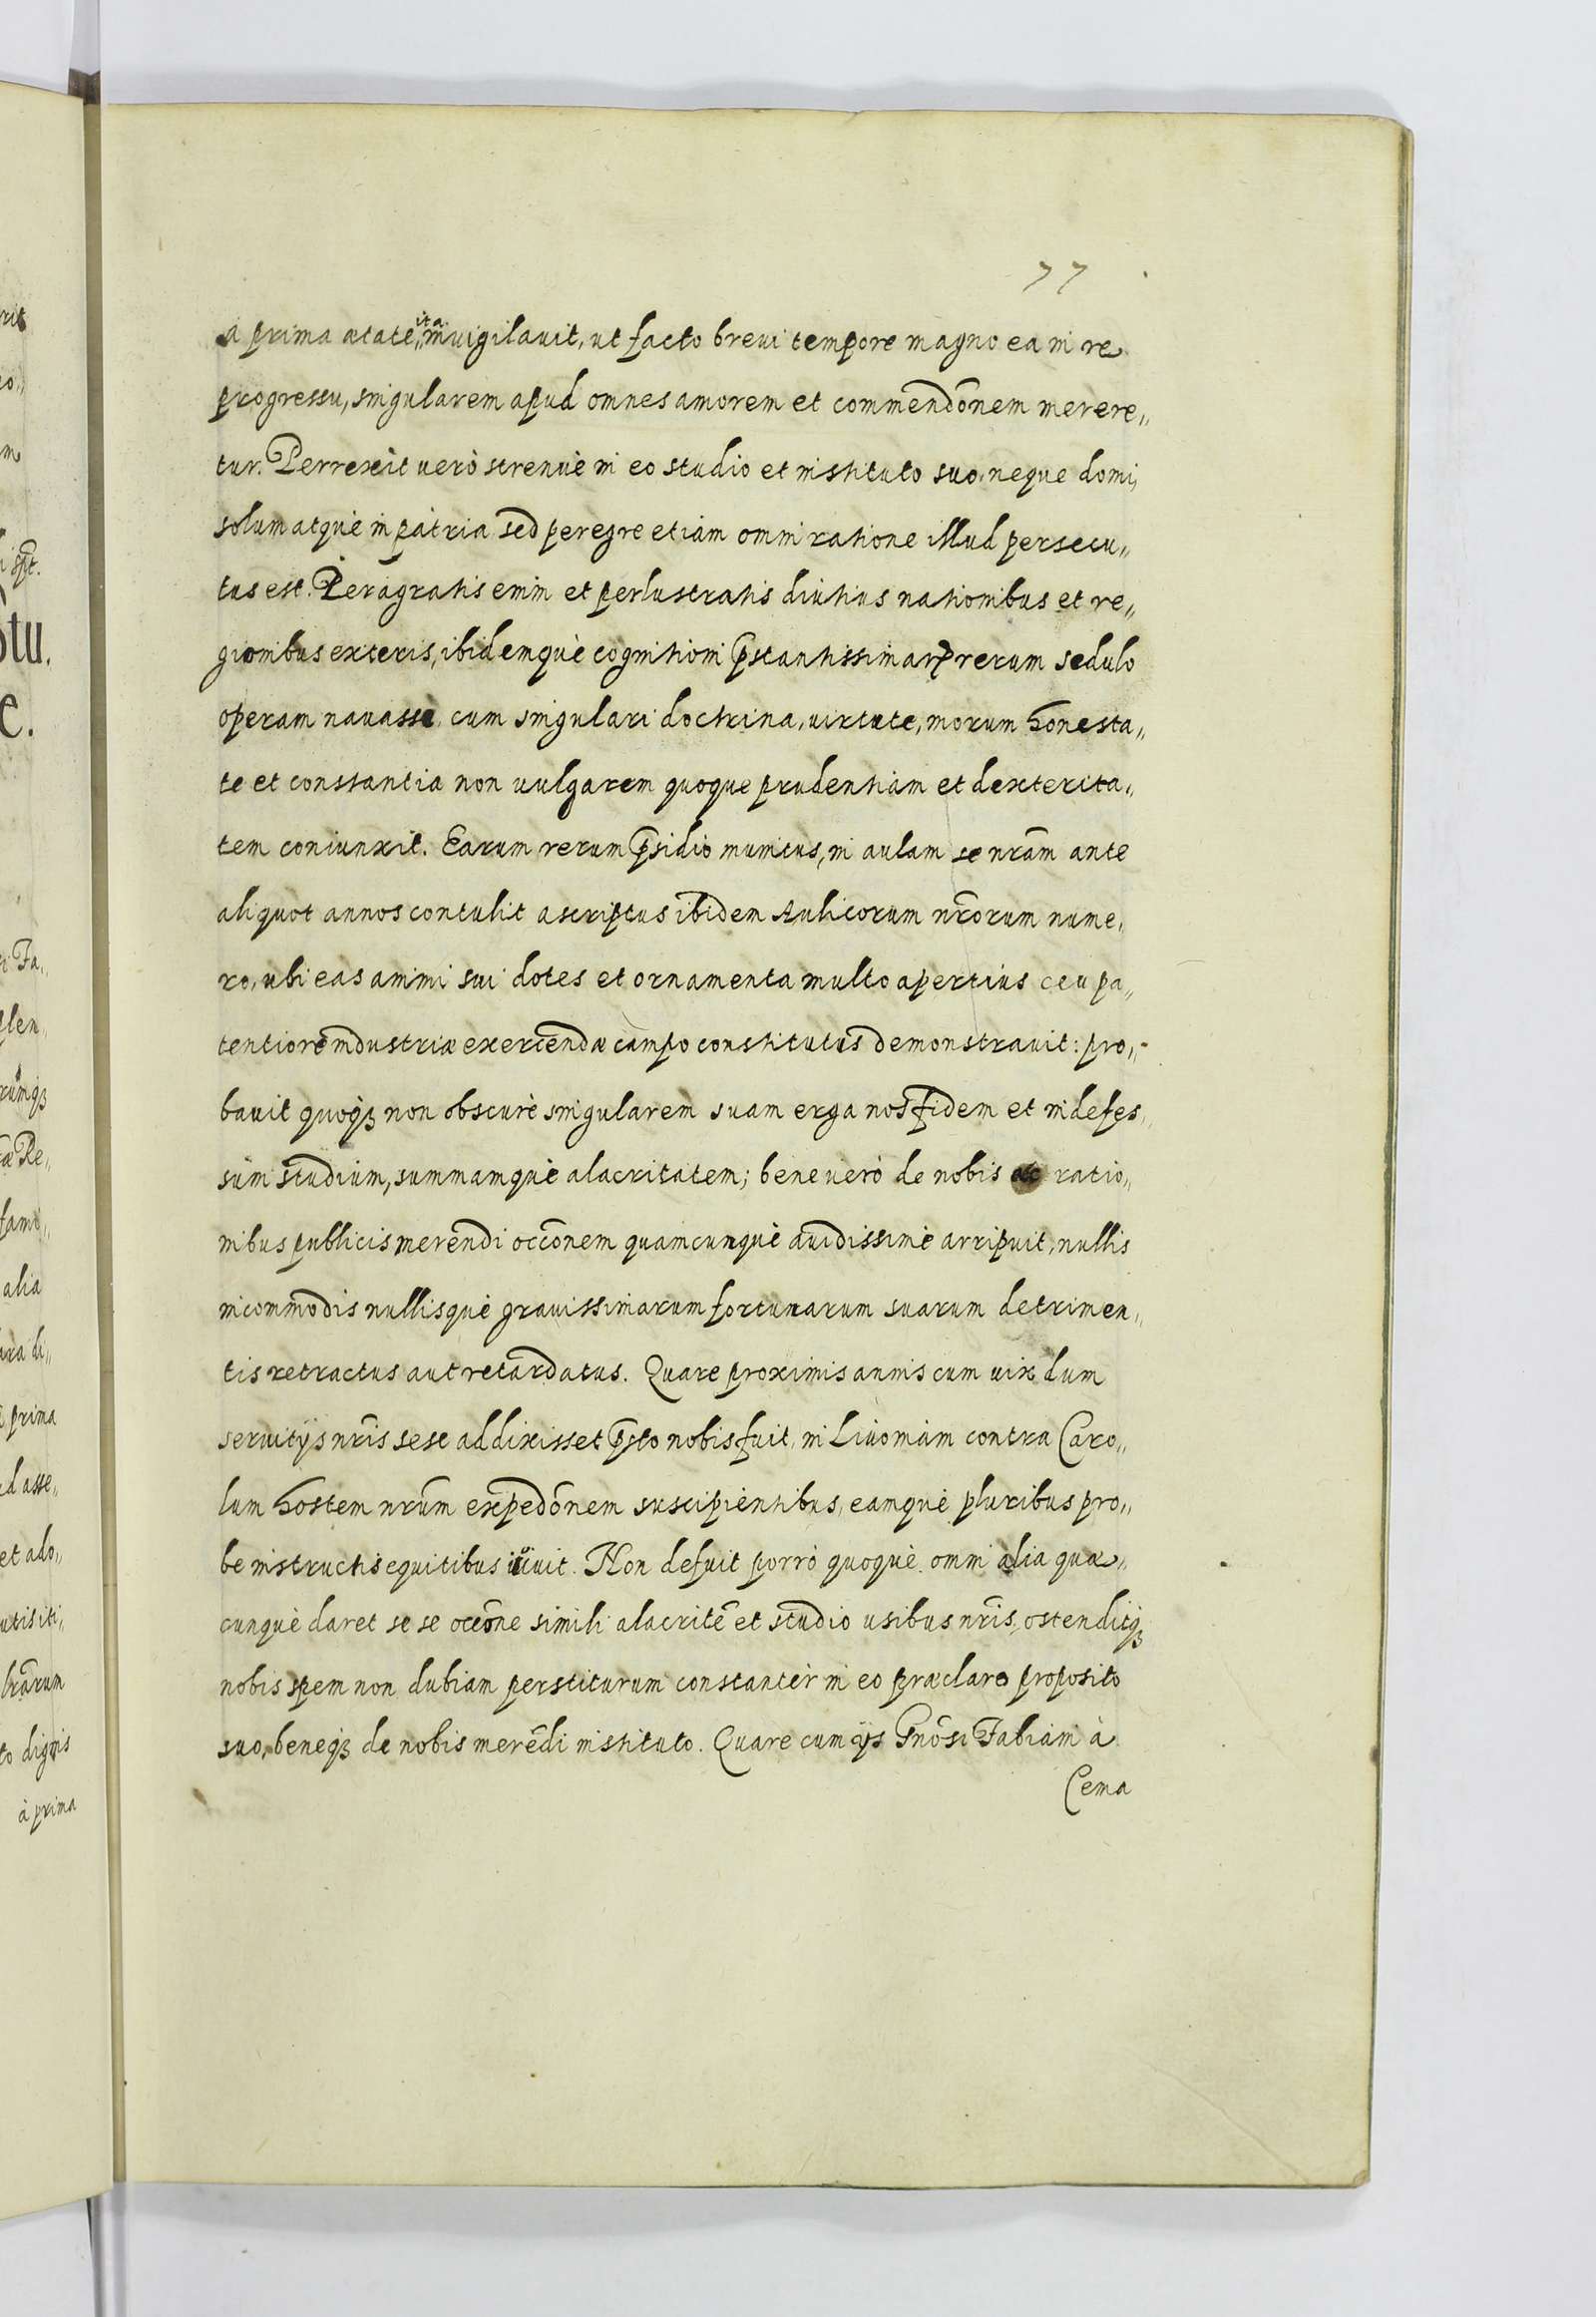 77
a prima ætate, ita inuigilauit, ut facto breui tempore magno ea in re
progressu, singularem apud omnes amorem et commendõnem merere„
tur. Perrexit uerò strenuè in eo studio et instituto suo, neque domi,
solum atquè in patria sed peregre etiam omni ratione illud persecu„
tus est. Peragratis enim et perlustratis diutius nationibus et re„
gionibus exteris, ibidemquè cognitioni p̃stantissimarꝝ rerum sedulo
operam nauasse, cum singulari doctrina, uirtute, morum honesta„
te et constantia non uulgarem quoque prudentiam et dexterita„
tem coniunxit. Earum rerum p̃sidio munitus, in aulam se nrãm ante
aliquot annos contulit ascriptus ibidem Aulicorum nrõrum nume„
ro, ubi eas animi sui dotes et ornamenta multo apertius ceu pa„
tentiorẽ industriæ exercendæ campo constitutus demonstrauit: pro„
bauit quoqꝫ non obscurè singularem suam erga nos fidem et indefes„
sum studium, summamquè alacritatem; bene uerò de nobis ac ratio„
nibus publicis merendi occõnem quamcunquè auidissimè arripuit, nullis
incommodis nullisquè grauissimarum fortunarum suarum detrimen„
tis retractus aut retardatus. Quare proximis annis cum uix dum
seruitijs nrĩs sese addixisset p̃sto nobis fuit, in Liuoniam contra Caro„
lum hostem nrũm expedõnem suscipientibus, eamquè pluribus pro„
be instructis equitibus iuuit. Non defuit porrò quoquè omni alia quæ„
cunquè daret se se occõne simili alacritẽ et studio usibus nrĩs, ostenditqꝫ
nobis spem non dubiam perstiturum constantèr in eo præclaro proposito
suo, beneqꝫ de nobis merẽdi instituto. Quare cum ijs Gnõsi Fabiani à
Cema